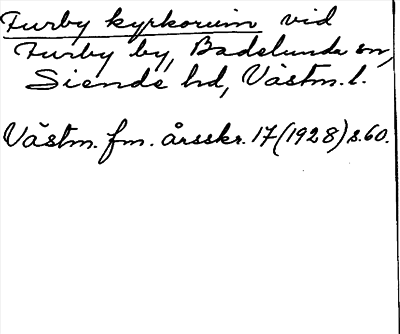 Furby kyrkoruin vid
Furby by, Badelunda sn,
Siende hd, Västm. l.
Västm. fm. årsskr. 17 (1928) s. 60.